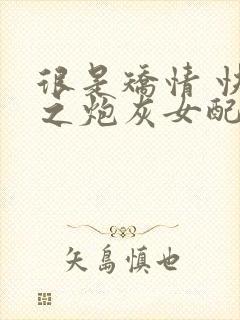 很是矯情 快
之炮灰女配
矢島慎也